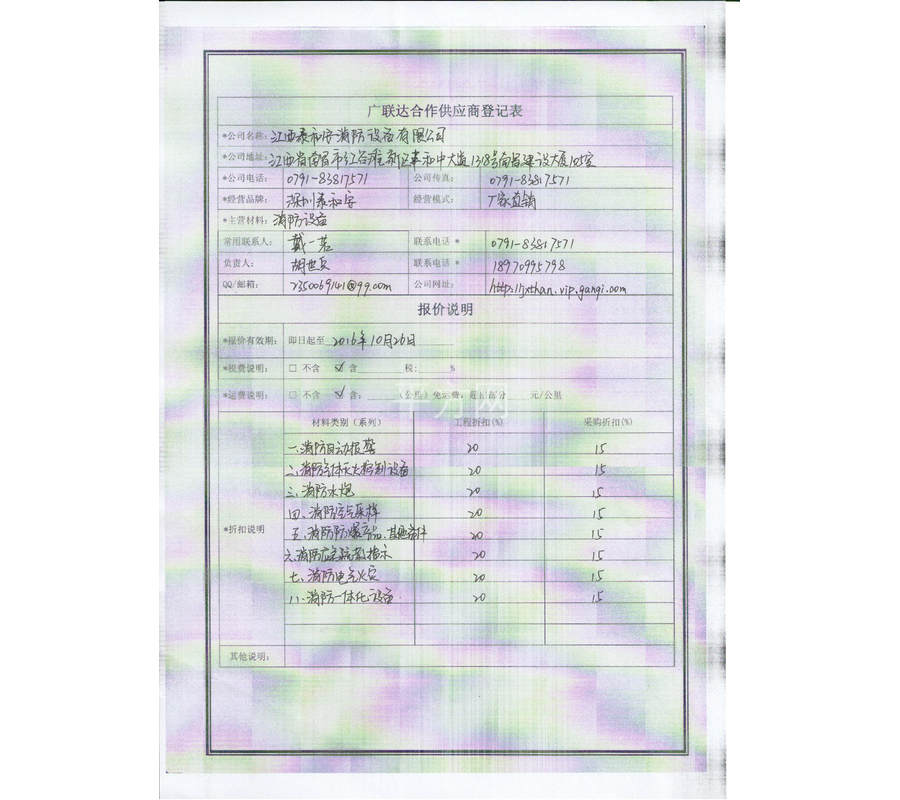 广联达合作供应商登记表
*公司名称: 江西泰和安消防设备有限公司
*公司地址: 江西省南昌市红谷滩新区丰和中大道1318号南昌建设大厦105室
*公司电话: 0791-83817571 公司传真: 0791-83817571
*经营品牌: 深圳泰和安 经营模式: 厂家直销
*主营材料: 消防设备
常用联系人: 戴一茗 联系电话 * 0791-83817571
负责人: 联系电话 * 18970995798
QQ/邮箱: 2350069141@qq.com 公司网址:
报价说明
*报价有效期: 即日起至 2016年10月26日
*税费说明: □ 不含 ☑ 含 税: %
*运费说明: □ 不含 ☑ 含: (公里) 免运费, 超出部分 元/公里
平方网
材料类别(系列) 工程折扣(%) 采购折扣(%)
*折扣说明
一、消防自动报警 20 15
二、消防气体灭火控制设备 20 15
三、消防水炮 20 15
四、消防空气采样 20 15
五、消防防爆产品、其他配件 20 15
六、消防应急疏散指示 20 15
七、消防电气火灾 20 15
八、消防一体化设备 20 15
其他说明: